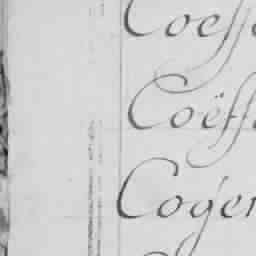 Coeff
Coëff
Coger